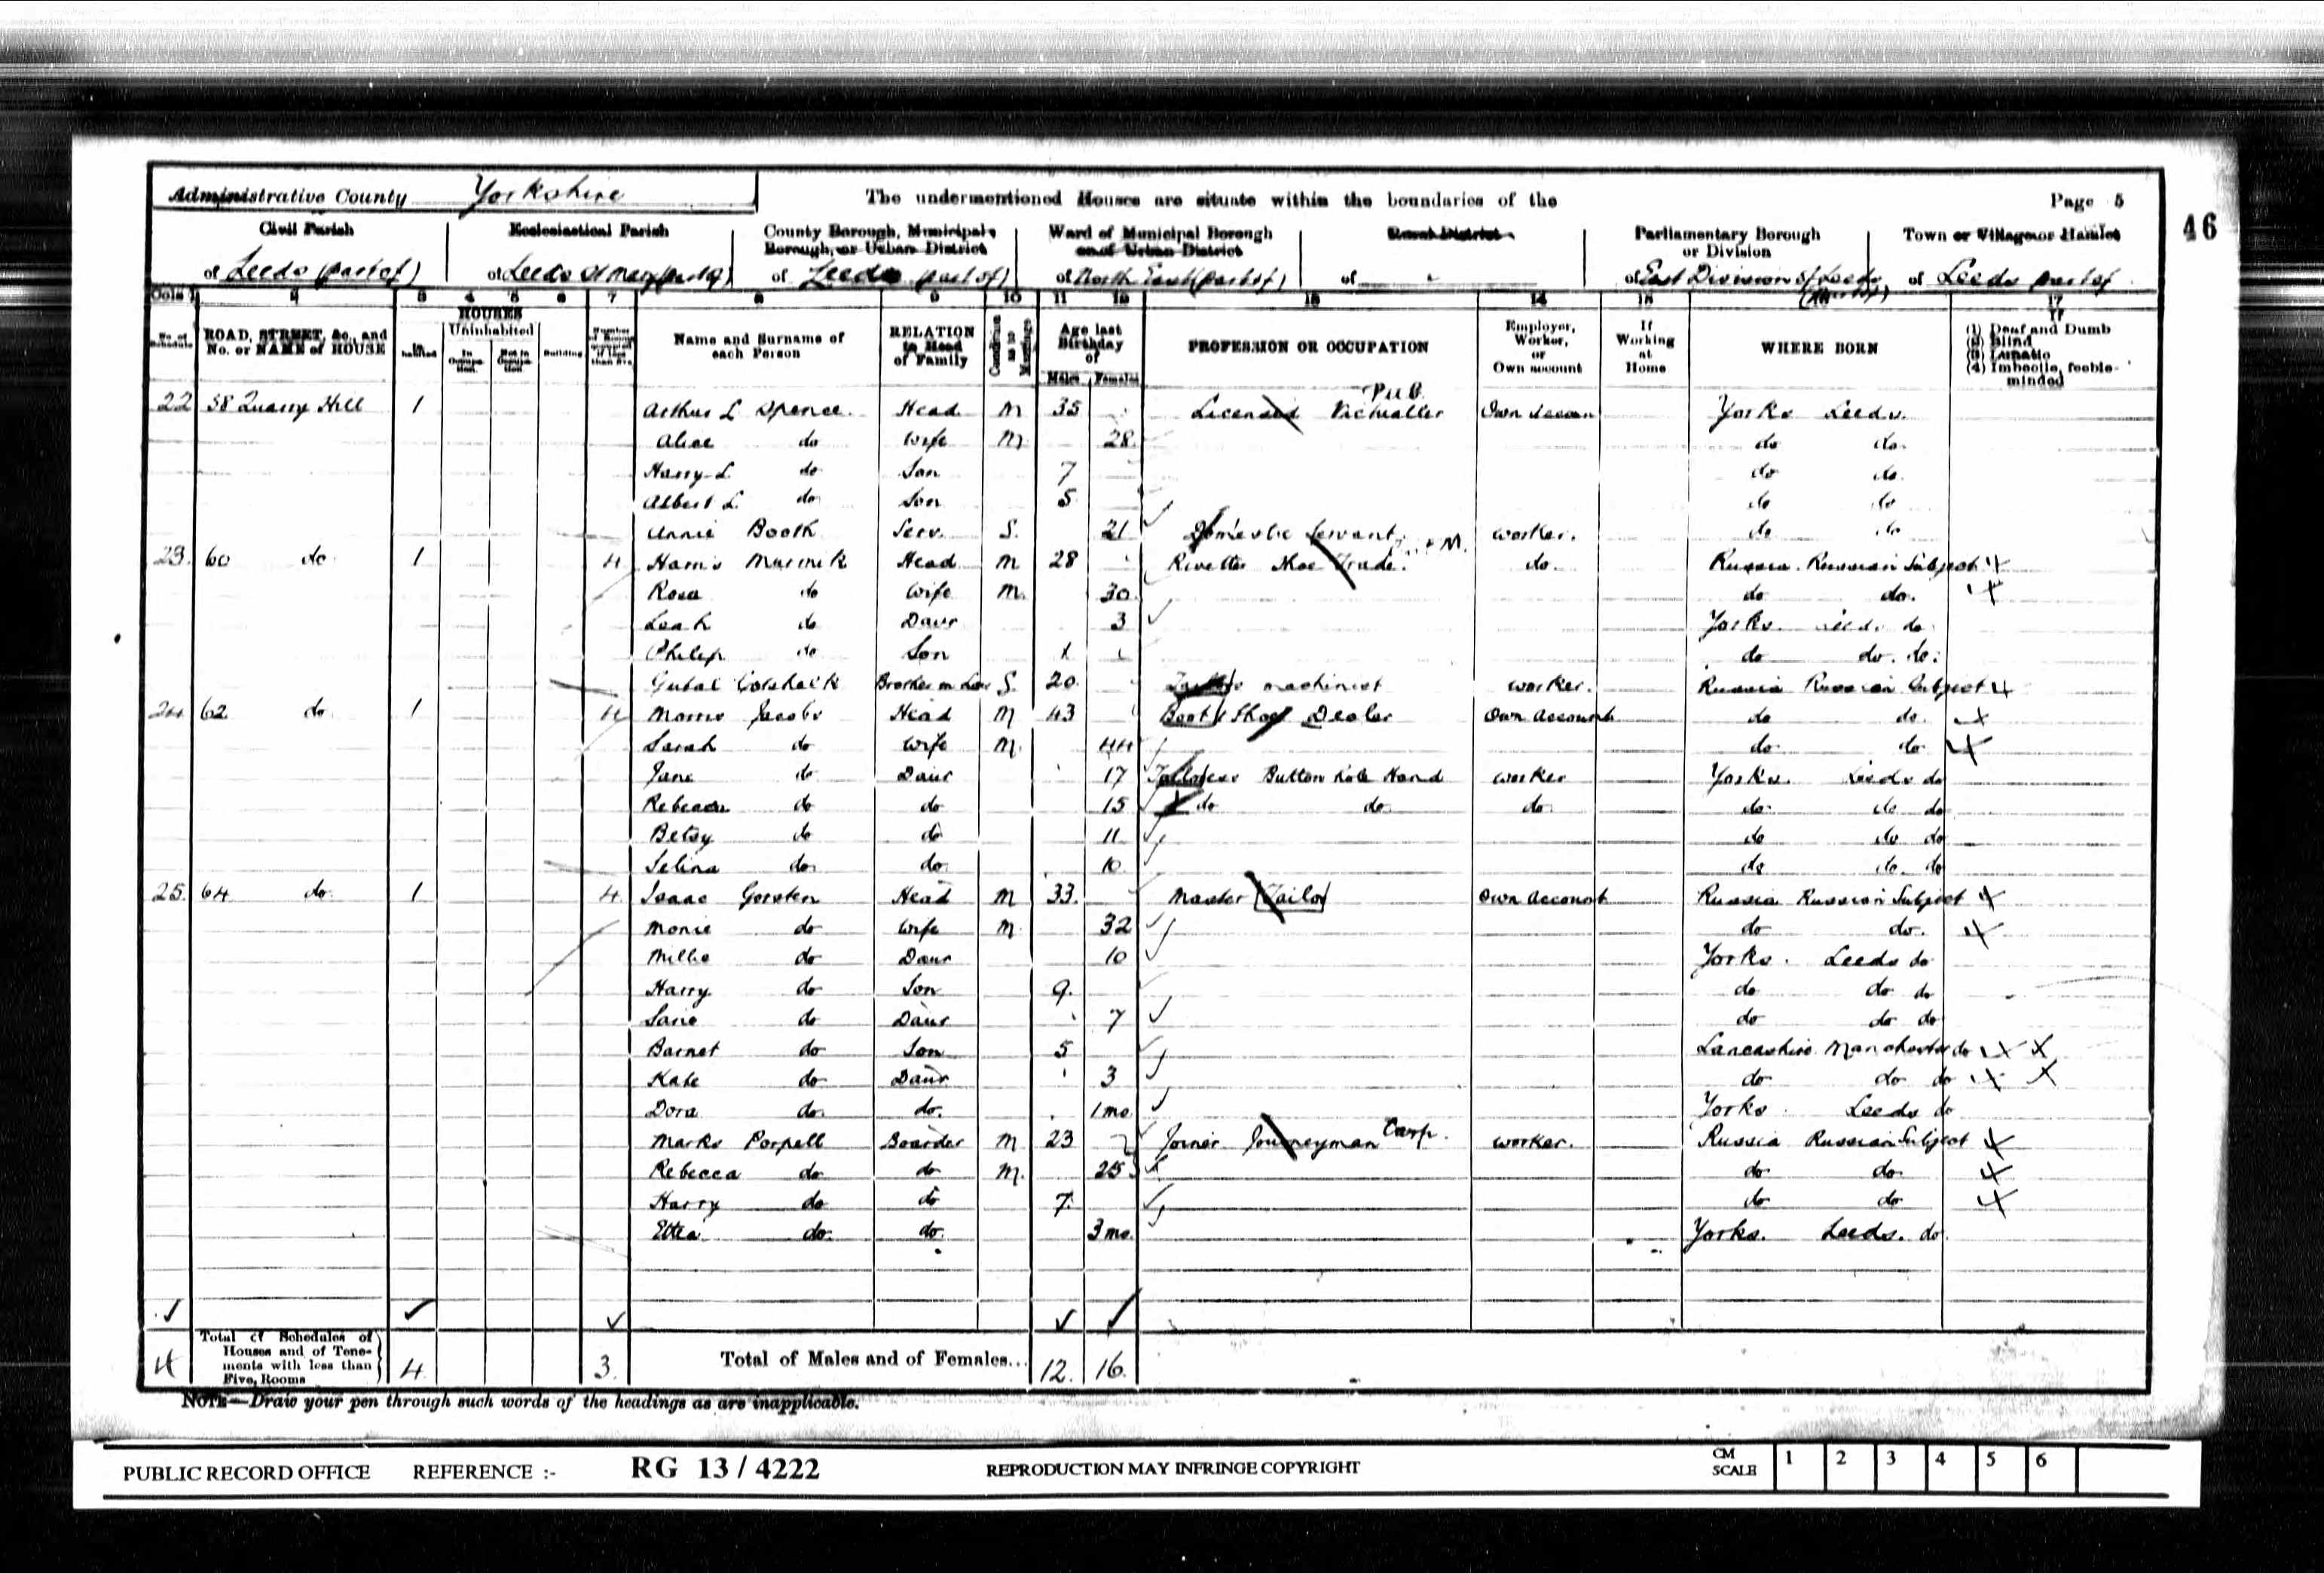 Administrative County Yorkshire The undermentioned Houses are situate within the boundaries of the Page 5
46
Civil Parish Ecclesiastical Parish County Borough, Municipal Borough, or Urban District Ward of Municipal Borough or of Urban District Rural District Parliamentary Borough or Division Town or Village or Hamlet
of Leeds (part of) of Leeds St Mary (part of) of Leeds (part of) of North East (part of) of of East Division of Leeds (part of) of Leeds part of
Cols 1 2 3 4 5 6 7 8 9 10 11 12 13 14 15 16 17
No. of Schedule ROAD, STREET, &c., and No. or NAME of HOUSE HOUSES In-habited Uninhabited In Occupation Not in Occupation Building Number of Rooms occupied if less than five Name and Surname of each Person RELATION to Head of Family Condition as to Marriage Age last Birthday of Males Females PROFESSION OR OCCUPATION Employer, Worker, or Own account If Working at Home WHERE BORN (1) Deaf and Dumb (2) Blind (3) Lunatic (4) Imbecile, feeble-minded
Pub
22 58 Quarry Hill 1 Arthur L Spence Head M 35 Licensed Victualler Own Accoun Yorks Leeds
Alice do Wife M 28 do do
Harry L do Son 7 do do
Albert L do Son 5 do do
Annie Booth Serv. S. 21 Domestic Servant worker. do do
23 60 do 1 4 Harris Head M 28 Rivetter Shoe Trade. do. Russia. Russian Subject
Rosa do Wife M. 30 do do.
Leah do Daur 3 Yorks. Leeds do
Philip do Son 1 do do. do.
Brother in Law S. 20 Tailors machinist worker. Russia Russian Subject
24 62 do 1 4 Morris Jacobs Head M 43 Boot & Shoe Dealer Own Account do do.
Sarah do Wife M. 44 do do
Jane do Daur 17 Tailoress Button hole Hand worker Yorks. Leeds do
Rebecca do do 15 do do do do do do
Betsy do do 11 do do do
Selina do do 10 do do. do
25. 64 do 1 4 Isaac Gorsten Head M 33. Master Tailor Own Account Russia Russian Subject
Monie do Wife M 32 do do.
Millie do Daur 10 Yorks. Leeds do
Harry do Son 9. do do do
do Daur 7 do do do
Barnet do Son 5 Lancashire Manchester do
Kate do Daur 3 do do do
Dora do. do. 1 mo Yorks. Leeds do
Marks Porpell Boarder M 23 Joiner Journeyman Carp. worker. Russia Russian Subject
Rebecca do do M. 25 do do.
Harry do do 7. do do
do. do. 3 mo. Yorks. Leeds. do.
4 Total of Schedules of Houses and of Tenements with less than Five Rooms 4 3. Total of Males and of Females... 12. 16.
NOTE—Draw your pen through such words of the headings as are inapplicable.
PUBLIC RECORD OFFICE REFERENCE :- RG 13 / 4222 REPRODUCTION MAY INFRINGE COPYRIGHT CM SCALE 1 2 3 4 5 6